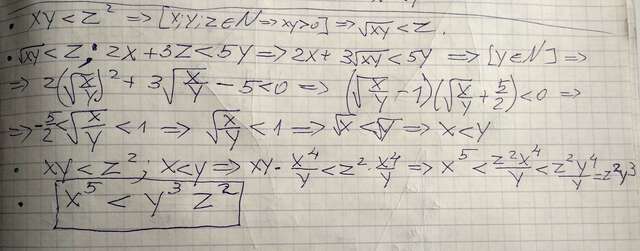 • xy < z² ⟹ [x,y,z∈N ⟹ xy>0] ⟹ √xy < z.
• √xy < z; 2x + 3z < 5y ⟹ 2x + 3√xy < 5y ⟹ [y∈N] ⟹
⟹ 2(√x/y)² + 3√x/y − 5 < 0 ⟹ (√x/y − 1)(√x/y + 5/2) < 0 ⟹
⟹ −5/2 < √x/y < 1 ⟹ √x/y < 1 ⟹ √x < √y ⟹ x < y
• xy < z²; x < y ⟹ xy · x⁴/y < z² · x⁴/y ⟹ x⁵ < z²x⁴/y < z²y⁴/y = z²y³
• x⁵ < y³ z²